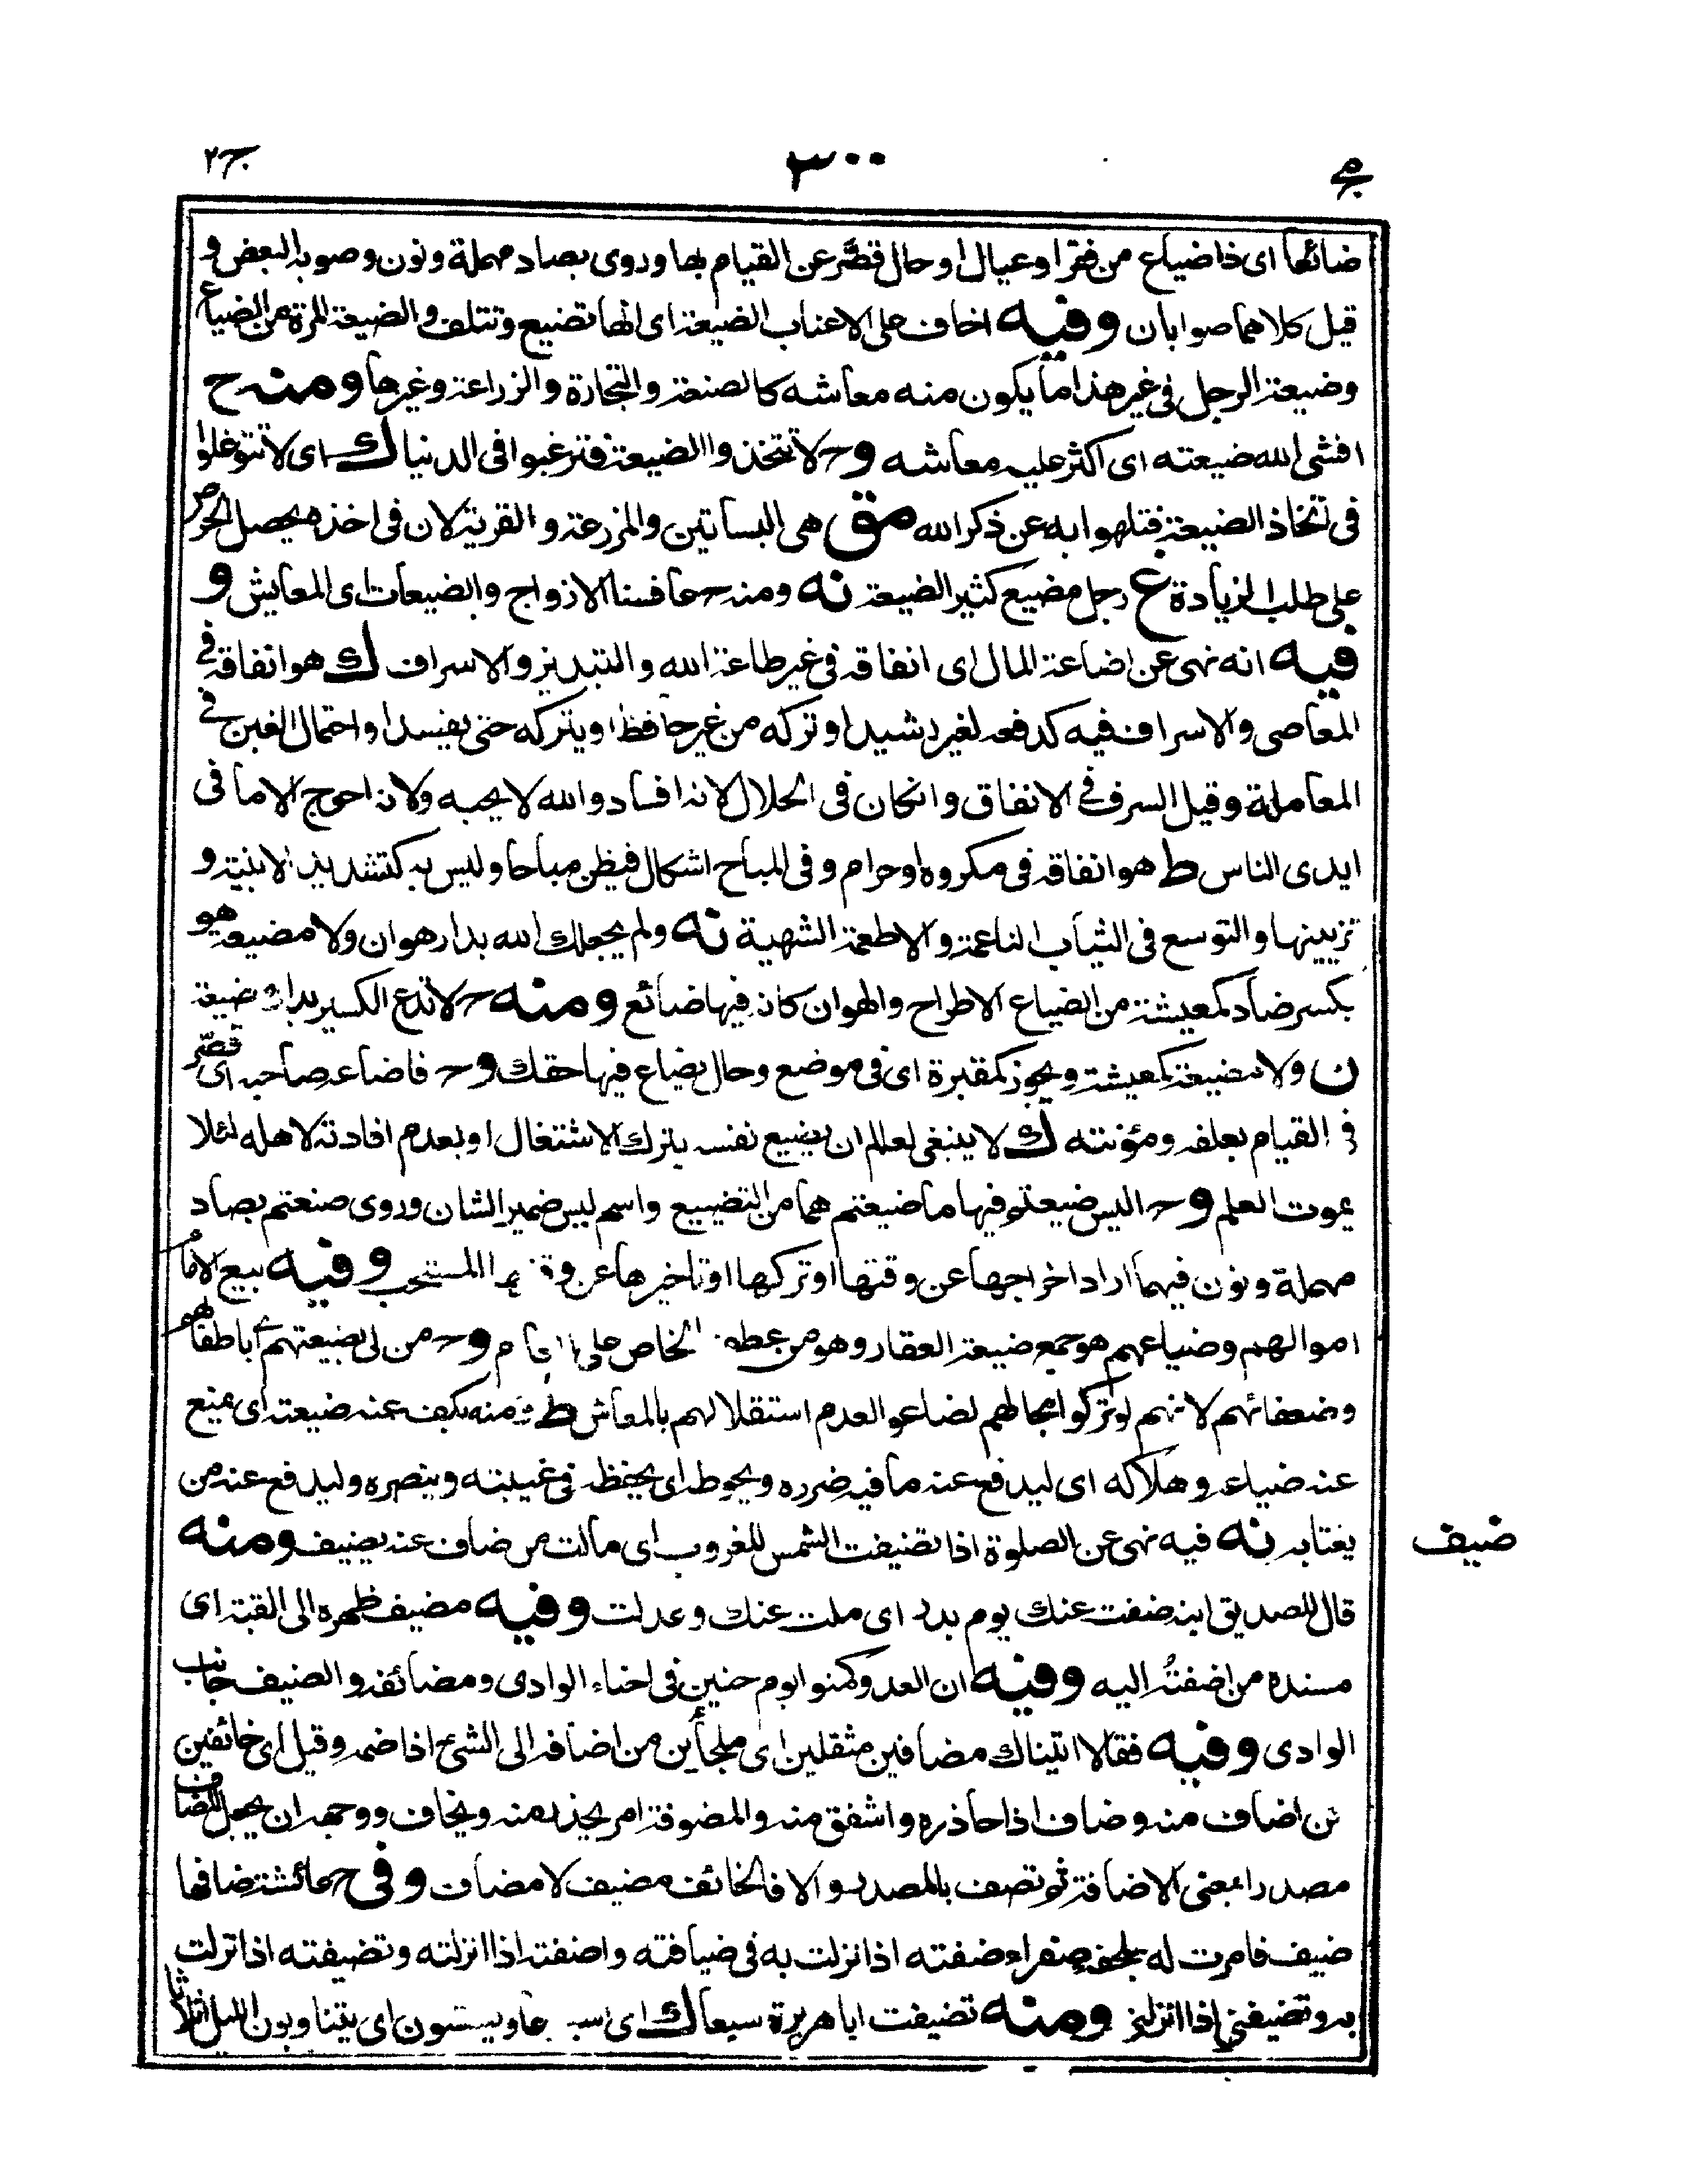 ج٢ ٣٠٠
ضائعا اى ذا ضياع من فقر او عيال او حال قصّر عن القيام بها وروى بصاد مهملة ونون وصوبه البعض و
قيل كلاهما صوابان وفيه اخاف على الاعناب الضيعة اى انها تضيع وتتلف والضيعة المرة من الضياع
وضيعة الرجل فى غير هذا ما يكون منه معاشه كالصنعة والتجارة والزراعة وغيرها ومنه ح
افشى الله ضيعته اى اكثر عليه معاشه وح لا تتخذوا الضيعة فترغبوا فى الدنيا ك اى لا تتوغلوا
فى تخاذ الضيعة فتلهوا به عن ذكر الله مق هى البساتين والمزرعة والقرية لان فى اخذه يحصل الحرص
على طلب الزيادة ع رجل مضيع كثير الضيعة نه ومنه ح عافسنا الازواج والضيعات اى المعايش و
فيه انه نهى عن اضاعة المال اى انفاقه فى غير طاعة الله والتبذير والاسراف ك هو انفاقه فى
المعاصى والاسراف فيه كدفعه لغير رشيد او تركه من غير حافظ او يتركه حتى يفسد او احتمال الغبن فى
المعاملة وقيل السرف فى الانفاق وان كان فى الحلال لانه افساد والله لا يحبه ولانه احوج الا ما فى
ايدى الناس ط هو انفاقه فى مكروه او حرام وفى المباح اشكال فيظن مباحا وليس به كتشديد الابنية و
تزيينها والتوسع فى الثياب الناعمة والاطعمة الشهية نه ولم يجعلك الله بدار هوان ولا مضيعة هو
بكسر ضاد كمعيشة من الضياع الاطراح والهوان كانه فيها ضائع ومنه ح لا تدع الكسير بدار ضيعة
ن ولا مضيعة كمعيشة ويجوز كمقبرة اى فى موضع وحال يضاع فيها حقك وح فاضاعه صاحبه اى قصّر
فى القيام بعلفه ومؤنته ك لا ينبغى لعالم ان يضيع نفسه بترك الاشتغال او بعدم افادته لاهله لئلا
يموت العلم وح اليس ضيعتم فيها ما ضيعتم هما من التضييع واسم ليس ضمير الشان وروى صنعتم بصاد
مهملة ونون فيهما اراد اخراجها عن وقتها او تركها او تاخيرها عن المستحب وفيه بيع الامام
اموالهم وضياعهم هو جمع ضيعة العقار وهو من عطف الخاص على العام وح من لى بضيعتهم اى باطفالهم
وضعفائهم لانهم لو تركوا بحالهم لضاعوا لعدم استقلالهم بالمعاش ط ومنه يكف عنه ضيعته اى يمنع
عنه ضياعه وهلاكه اى ليدفع عنه ما فيه ضرره ويحوطه اى يحفظه فى غيبته وينصره وليدفع عنه من
يغتابه نه فيه نهى عن الصلوة اذا تضيفت الشمس للغروب اى مالت من ضاف عنه يضيف ومنه
ضيف
قال للصديق ابنه ضفت عنك يوم بدر اى ملت عنك وعدلت وفيه مضيف ظهره الى القبة اى
مسنده من اضفتُه اليه وفيه ان العدو كمنوا يوم حنين فى احناء الوادى ومضائفه والضيف جانب
الوادى وفيه فقالا اتيناك مضافين مثقلين اى ملجأين من اضافه الى الشئ اذا ضمه وقيل اى خائفين
من اضاف منه وضاف اذا حاذره واشفق منه والمضوفة امر يحذر منه ويخاف ووجهه ان يجعل المضاف
مصدرا بمعنى الاضافة ثم تصف بالمصدر والا فالخائف مضيف لا مضاف وفى ح عائشة ضافها
ضيف فامرت له بملحفة صفراء ضفته اذا نزلت به فى ضيافته واضفته اذا انزلته وتضيفته اذا نزلت
به وتضيفنى اذا انزلنى ومنه تضيفت ابا هريرة سبعا ك اى ويتعشون اى يبيتنا وبون الليل اثلاثا